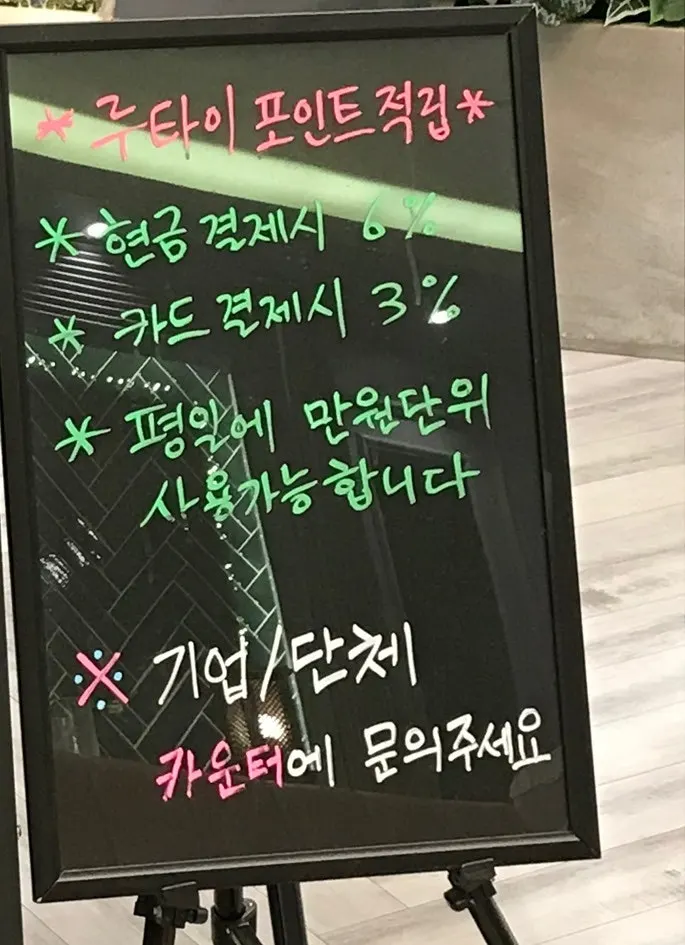 * 루타이 포인트적립 *
* 현금결제시 6%
* 카드결제시 3%
* 평일에 만원단위
사용가능합니다
※ 기업/단체
카운터에 문의주세요